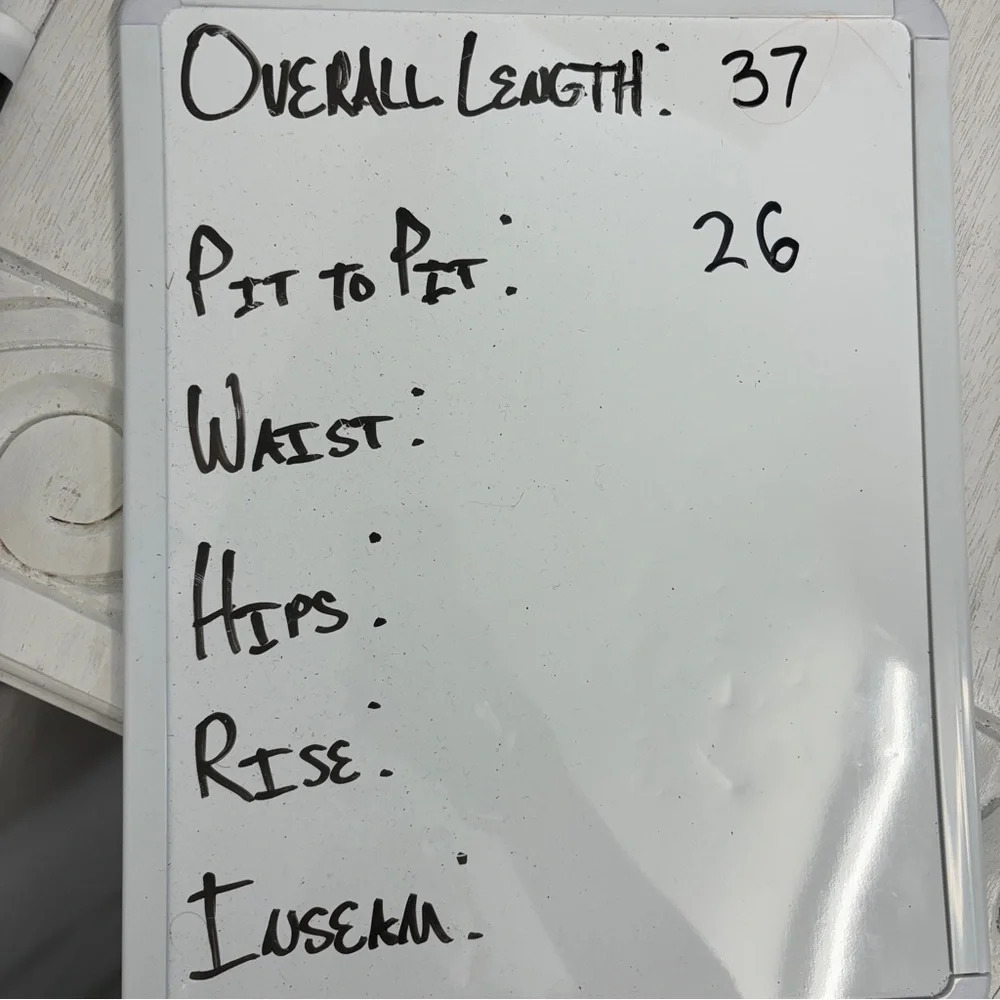 OVERALL LENGTH: 37
PIT TO PIT: 26
WAIST:
HIPS:
RISE:
INSEAM: